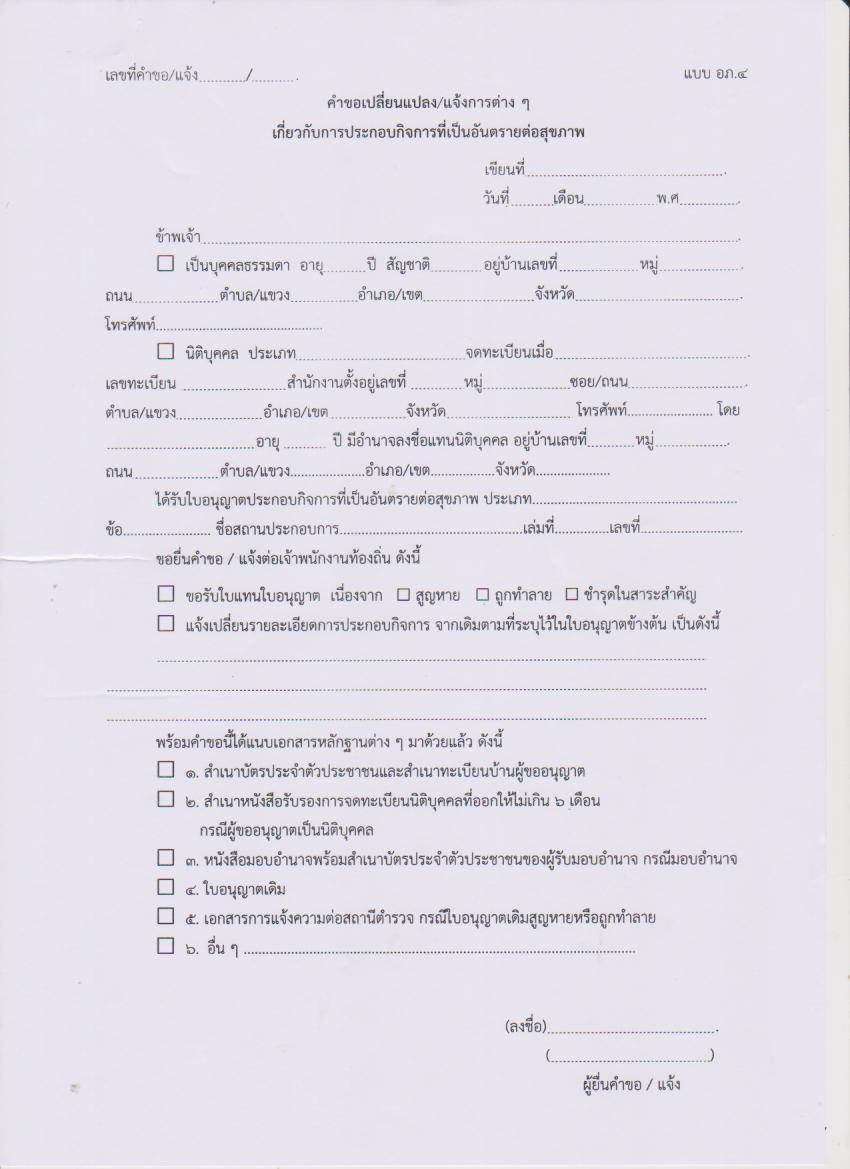 เลขที่คำขอ/แจ้ง............/............. แบบ อภ.๔
คำขอเปลี่ยนแปลง/แจ้งการต่าง ๆ
เกี่ยวกับการประกอบกิจการที่เป็นอันตรายต่อสุขภาพ
เขียนที่.....................................................
วันที่............เดือน....................พ.ศ.................
ข้าพเจ้า..............................................................................................................................
☐ เป็นบุคคลธรรมดา อายุ..........ปี สัญชาติ.............อยู่บ้านเลขที่....................หมู่......................
ถนน.......................ตำบล/แขวง..................อำเภอ/เขต.............................จังหวัด............................................
โทรศัพท์..............................................
☐ นิติบุคคล ประเภท.............................................จดทะเบียนเมื่อ....................................................
เลขทะเบียน ............................สำนักงานตั้งอยู่เลขที่ ..............หมู่.......................ซอย/ถนน................................
ตำบล/แขวง.......................อำเภอ/เขต....................จังหวัด.................................. โทรศัพท์........................ โดย
........................................อายุ ............ ปี มีอำนาจลงชื่อแทนนิติบุคคล อยู่บ้านเลขที่............หมู่....................
ถนน.......................ตำบล/แขวง.....................อำเภอ/เขต..................จังหวัด.....................
ได้รับใบอนุญาตประกอบกิจการที่เป็นอันตรายต่อสุขภาพ ประเภท.......................................................
ข้อ........................ ชื่อสถานประกอบการ..................................................เล่มที่...............เลขที่............................
ขอยื่นคำขอ / แจ้งต่อเจ้าพนักงานท้องถิ่น ดังนี้
☐ ขอรับใบแทนใบอนุญาต เนื่องจาก ☐ สูญหาย ☐ ถูกทำลาย ☐ ชำรุดในสาระสำคัญ
☐ แจ้งเปลี่ยนรายละเอียดการประกอบกิจการ จากเดิมตามที่ระบุไว้ในใบอนุญาตข้างต้น เป็นดังนี้
......................................................................................................................................
......................................................................................................................................................
......................................................................................................................................................
พร้อมคำขอนี้ได้แนบเอกสารหลักฐานต่าง ๆ มาด้วยแล้ว ดังนี้
☐ ๑. สำเนาบัตรประจำตัวประชาชนและสำเนาทะเบียนบ้านผู้ขออนุญาต
☐ ๒. สำเนาหนังสือรับรองการจดทะเบียนนิติบุคคลที่ออกให้ไม่เกิน ๖ เดือน
กรณีผู้ขออนุญาตเป็นนิติบุคคล
☐ ๓. หนังสือมอบอำนาจพร้อมสำเนาบัตรประจำตัวประชาชนของผู้รับมอบอำนาจ กรณีมอบอำนาจ
☐ ๔. ใบอนุญาตเดิม
☐ ๕. เอกสารการแจ้งความต่อสถานีตำรวจ กรณีใบอนุญาตเดิมสูญหายหรือถูกทำลาย
☐ ๖. อื่น ๆ ............................................................................................................
(ลงชื่อ)..............................................
(...........................................)
ผู้ยื่นคำขอ / แจ้ง